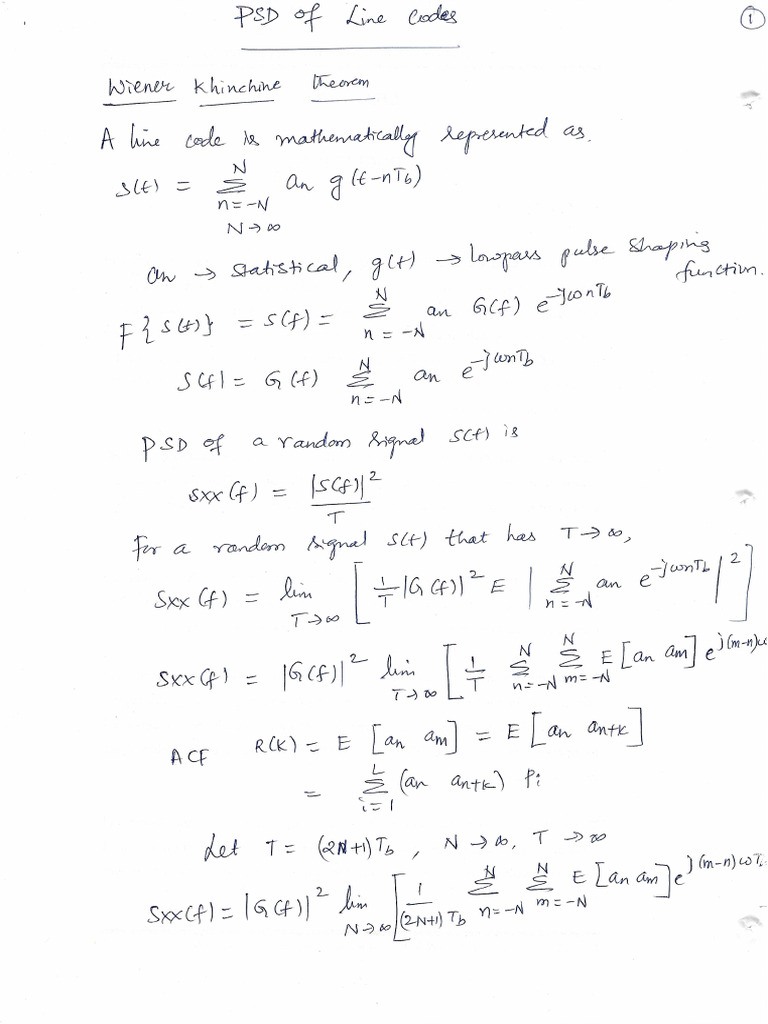 PSD of Line Codes
1
Wiener Khinchine theorem
A line code is mathematically represented as.
S(t) = N Σ n=-N N→∞ an g(t-nTb)
an → statistical, g(t) → lowpass pulse shaping function.
F{S(t)} = S(f) = N Σ n=-N an G(f) e^-jωnTb
S(f) = G(f) N Σ n=-N an e^-jωnTb
PSD of a random signal S(t) is
Sxx(f) = |S(f)|² / T
For a random signal S(t) that has T→∞,
Sxx(f) = lim T→∞ [ 1/T |G(f)|² E | N Σ n=-N an e^-jωnTb |² ]
Sxx(f) = |G(f)|² lim T→∞ [ 1/T N Σ n=-N N Σ m=-N E[an am] e^j(m-n)ω
ACF R(K) = E [an am] = E [an an+k]
= L Σ i=1 (an an+k) Pi
Let T = (2N+1)Tb, N→∞, T→∞
Sxx(f) = |G(f)|² lim N→∞ [ 1/(2N+1)Tb N Σ n=-N N Σ m=-N E[an am] e^j(m-n)ωT